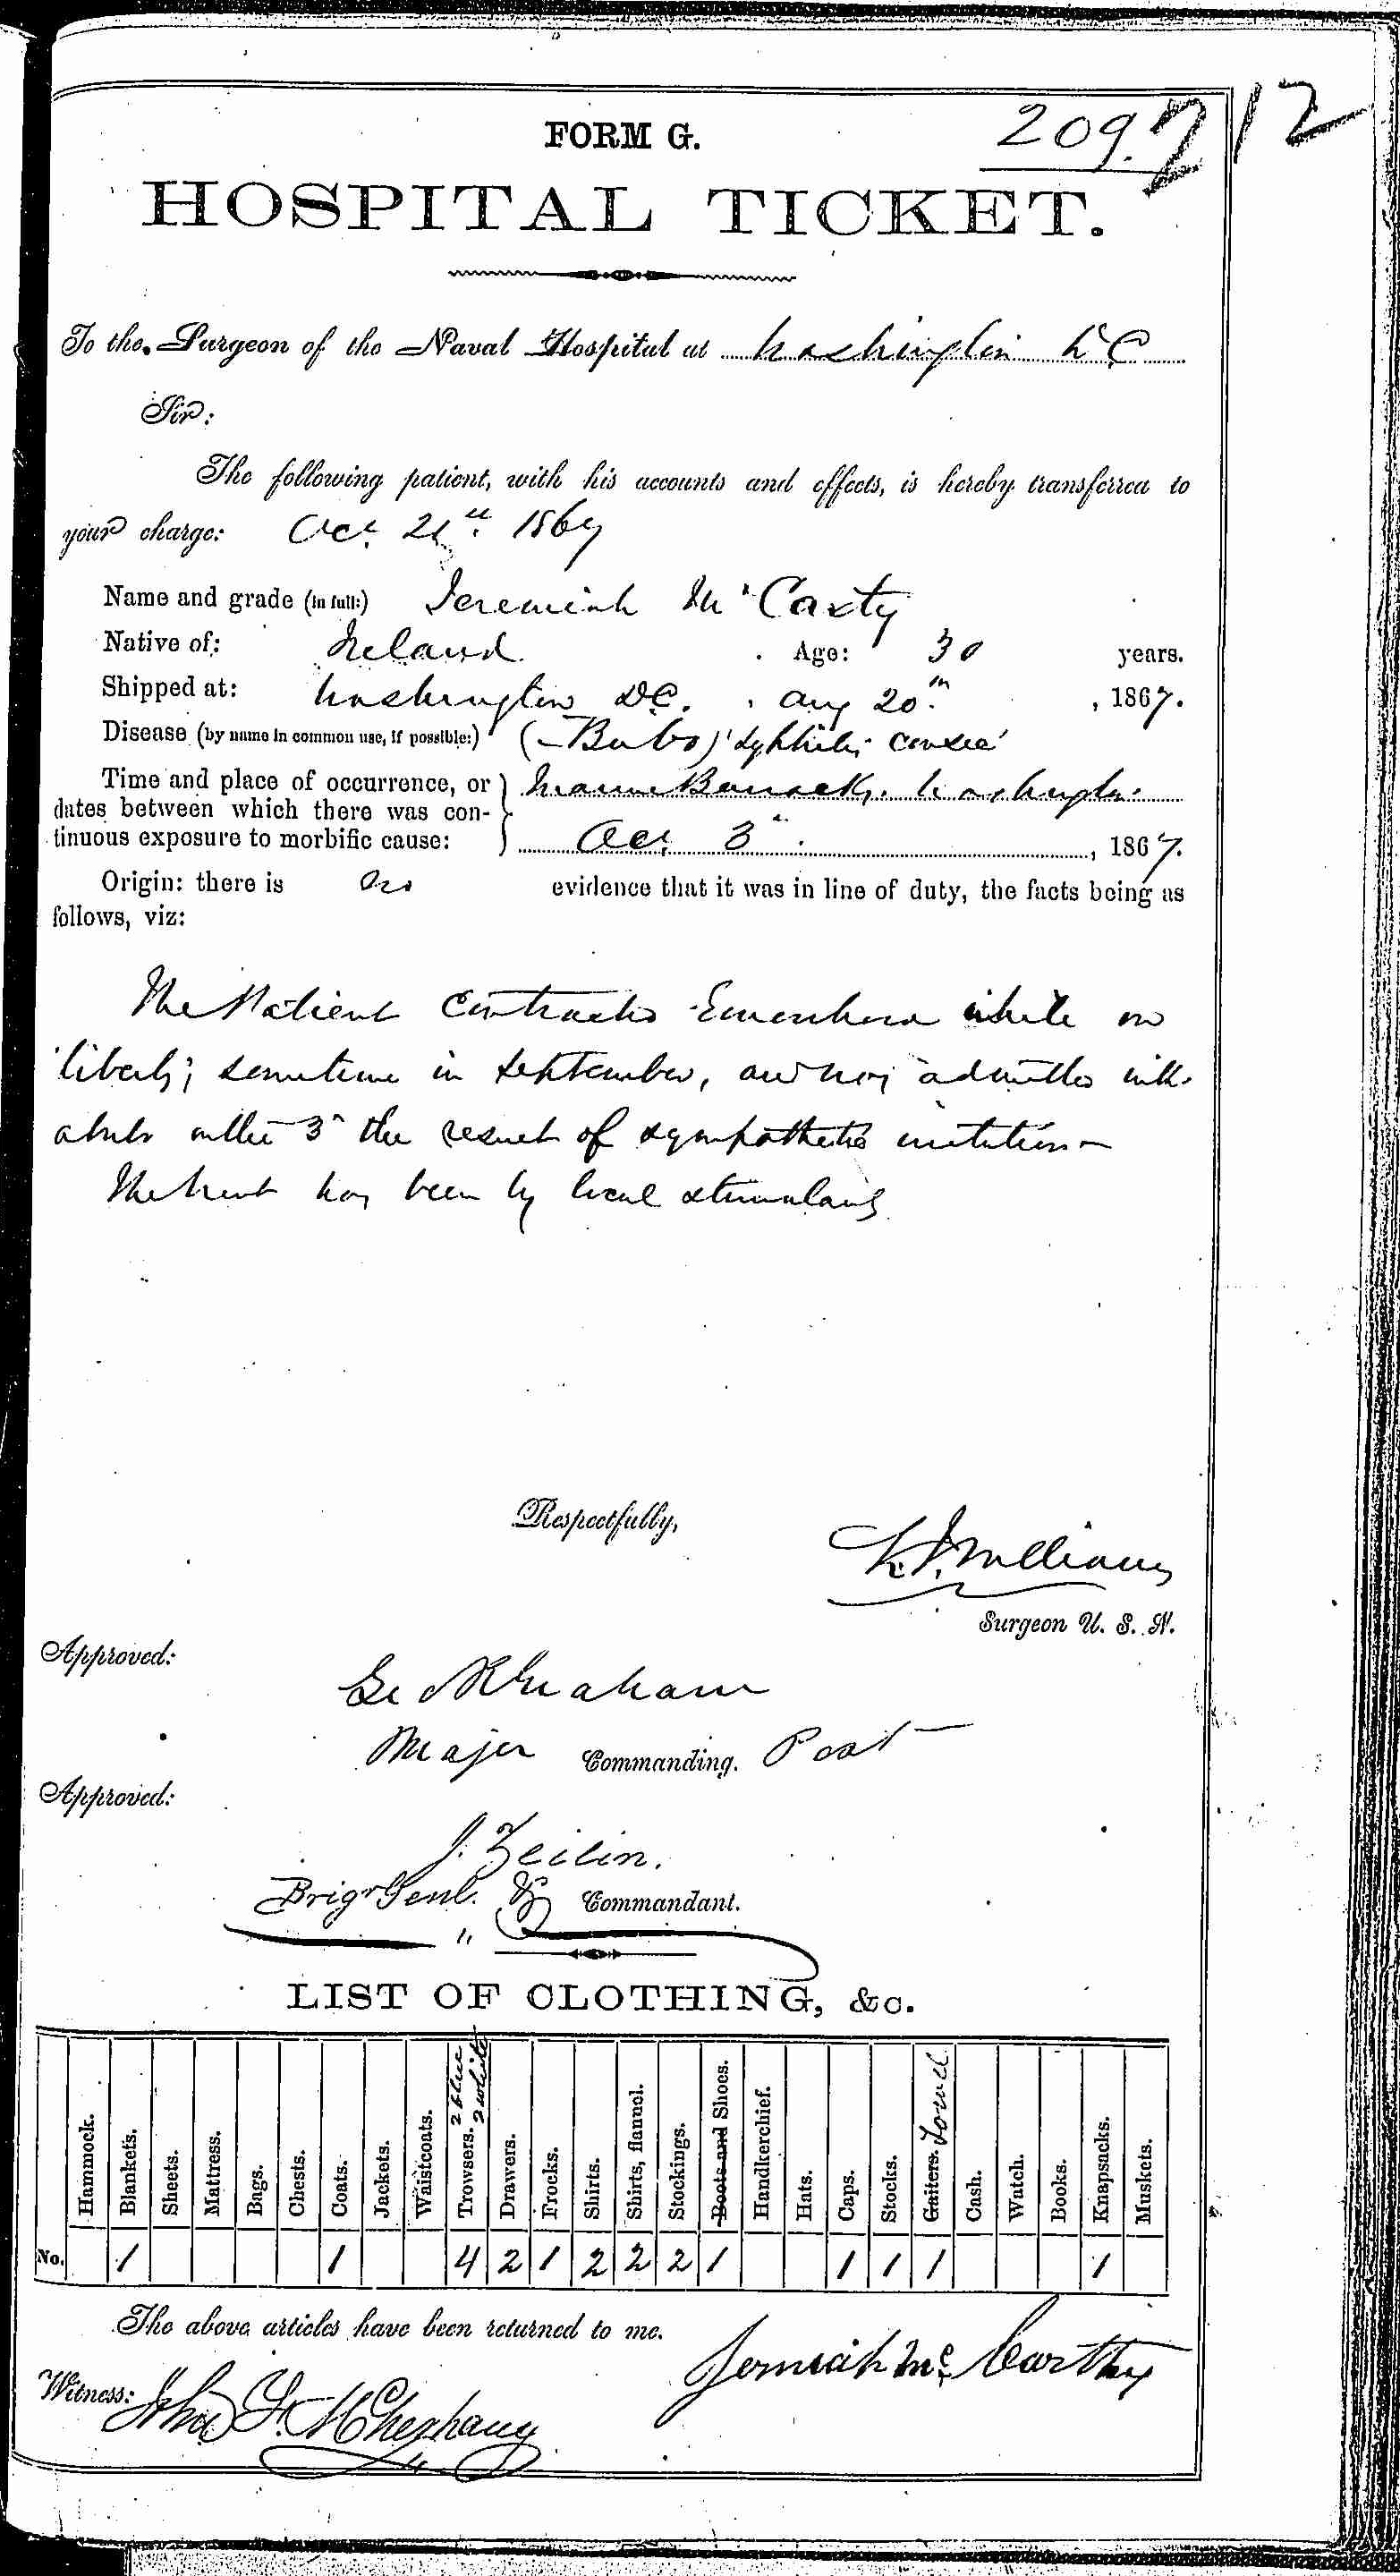 FORM G.
209. 712
HOSPITAL TICKET.
To the Surgeon of the Naval Hospital at Washington DC
Sir:
The following patient, with his accounts and effects, is hereby transferred to
your charge: Oct. 1867
Name and grade (in full:) Jeremiah McCarty
Native of: Ireland. Age: 30 years.
Shipped at: Washington DC. Aug 20th, 1867.
Disease (by name in common use, if possible:) (Bubo) Syphilis
Time and place of occurrence, or Marine Barracks. Washington
dates between which there was con-
tinuous exposure to morbific cause: Oct. 3, 1867.
Origin: there is no evidence that it was in line of duty, the facts being as
follows, viz:
The Patient Contracted while on
liberty; sometime in September, and was admitted with
a bubo on the 3d the result of sympathetic irritation
The treat has been by local stimulants
Respectfully,
Williams
Surgeon U. S. N.
Approved:
Geo R Graham
Major Commanding. Post
Approved:
J. Zeilin.
Brigr Genl. & Commandant.
LIST OF CLOTHING, &c.
Hammock. Blankets. Sheets. Mattress. Bags. Chests. Coats. Jackets. Waistcoats. Trowsers. 2 blue 2 white Drawers. Frocks. Shirts. Shirts, flannel. Stockings. Boots and Shoes. Handkerchief. Hats. Caps. Stocks. Gaiters. Towel Cash. Watch. Books. Knapsacks. Muskets.
No. 1 1 4 2 1 2 2 2 1 1 1 1 1
The above articles have been returned to me.
Jermiah Mc Carthy
Witness: John F.